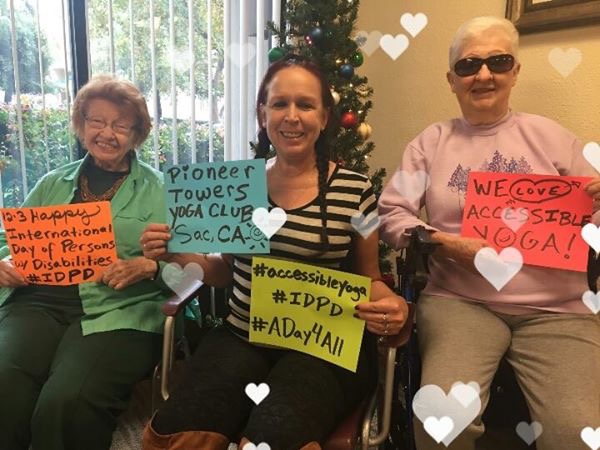 12·3 Happy
International
Day of Persons
w/ Disabilities
#IDPD
Pioneer
Towers
YOGA CLUB
Sac, CA
#accessibleyoga
#IDPD
#ADay4All
WE LOVE
ACCESSIBLE
YOGA!